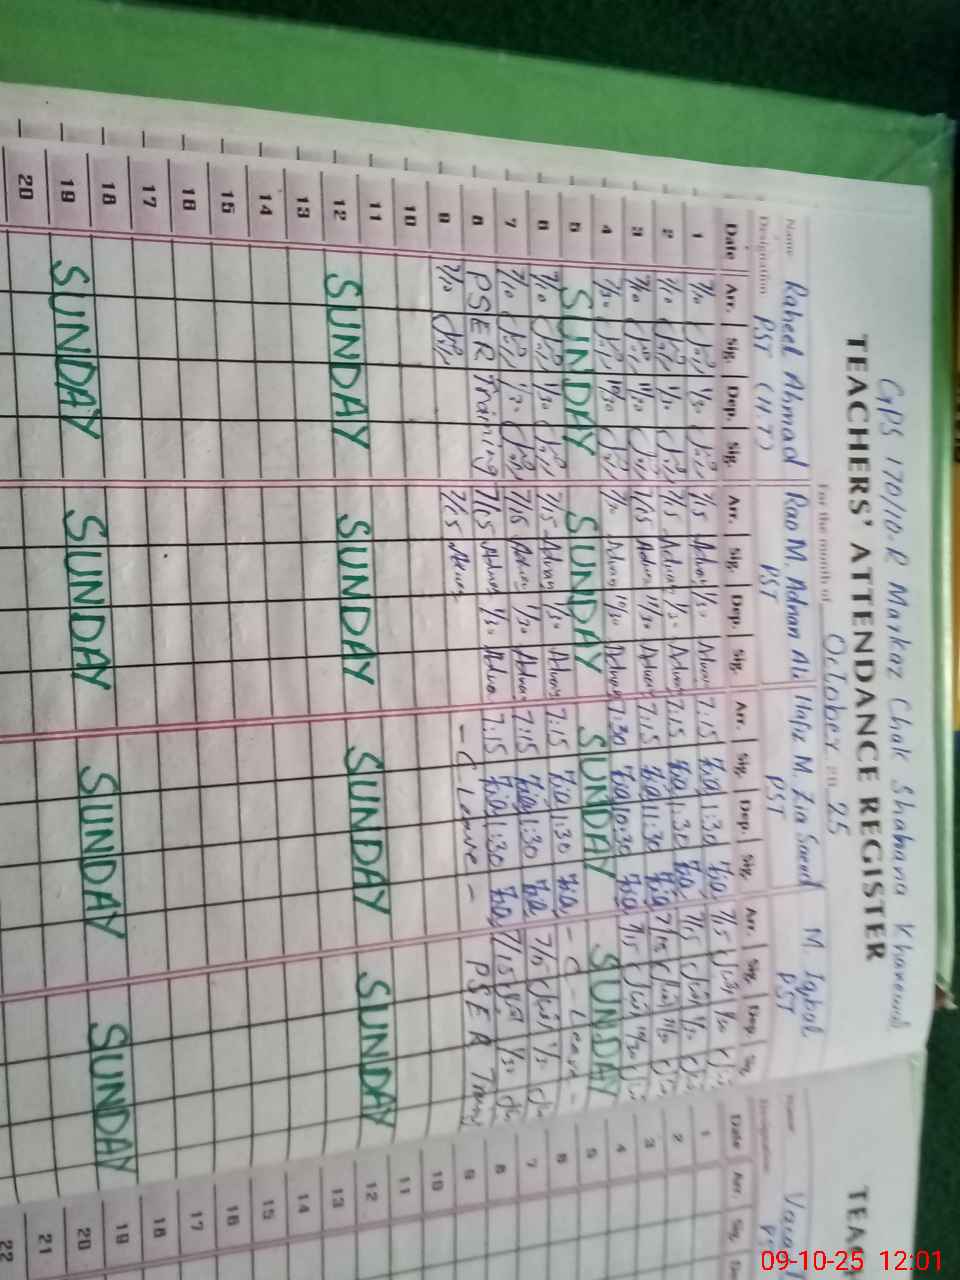 GPS 170/10-R Markaz Chak Shahana Khanewal
TEACHERS' ATTENDANCE REGISTER
For the month of October 20 25
Name Raheel Ahmad Rao M. Adnan Ali Hafiz M. Zia Saeed M. Iqbal
Designation PST (H.T) PST PST PST
Date Arr. Sig. Dep. Sig. Arr. Sig. Dep. Sig. Arr. Sig. Dep. Sig. Arr. Sig. Dep. Sig.
1 7/10 1/30 7/15 Adnan 1/30 Adnan 7:15 Zia 1:30 Zia 7/15 1/30
2 7/10 1/30 7/15 Adnan 1/30 Adnan 7:15 Zia 1:30 Zia 7/15 1/30
3 7/10 11/30 7/15 Adnan 11/30 Adnan 7:15 Zia 11:30 Zia 7/15 11/30
4 7/30 10/30 Adnan 10/30 Adnan 7:30 Zia 10:30 Zia 7/15 10/30
5 SUNDAY SUNDAY SUNDAY SUNDAY
6 7/10 1/30 7/15 Adnan 1/30 Adnan 7:15 Zia 1:30 Zia - C - Leave -
7 7/10 1/30 7/15 Adnan 1/30 Adnan 7:15 Zia 1:30 Zia 7/15 1/30
8 PSER Training 7/15 Adnan 1/30 Adnan 7:15 Zia 1:30 Zia 7/15 1/30
9 7/10 7/15 Adnan - C Leave - PSER
10
11
12 SUNDAY SUNDAY SUNDAY SUNDAY
13
14
15
16
17
18
19 SUNDAY SUNDAY SUNDAY SUNDAY
20
TEA
Name
Designation
Date Arr. Sig.
1
2
3
4
5
6
7
8
9
10
11
12
13
14
15
16
17
18
19
20
21
22
09-10-25 12:01